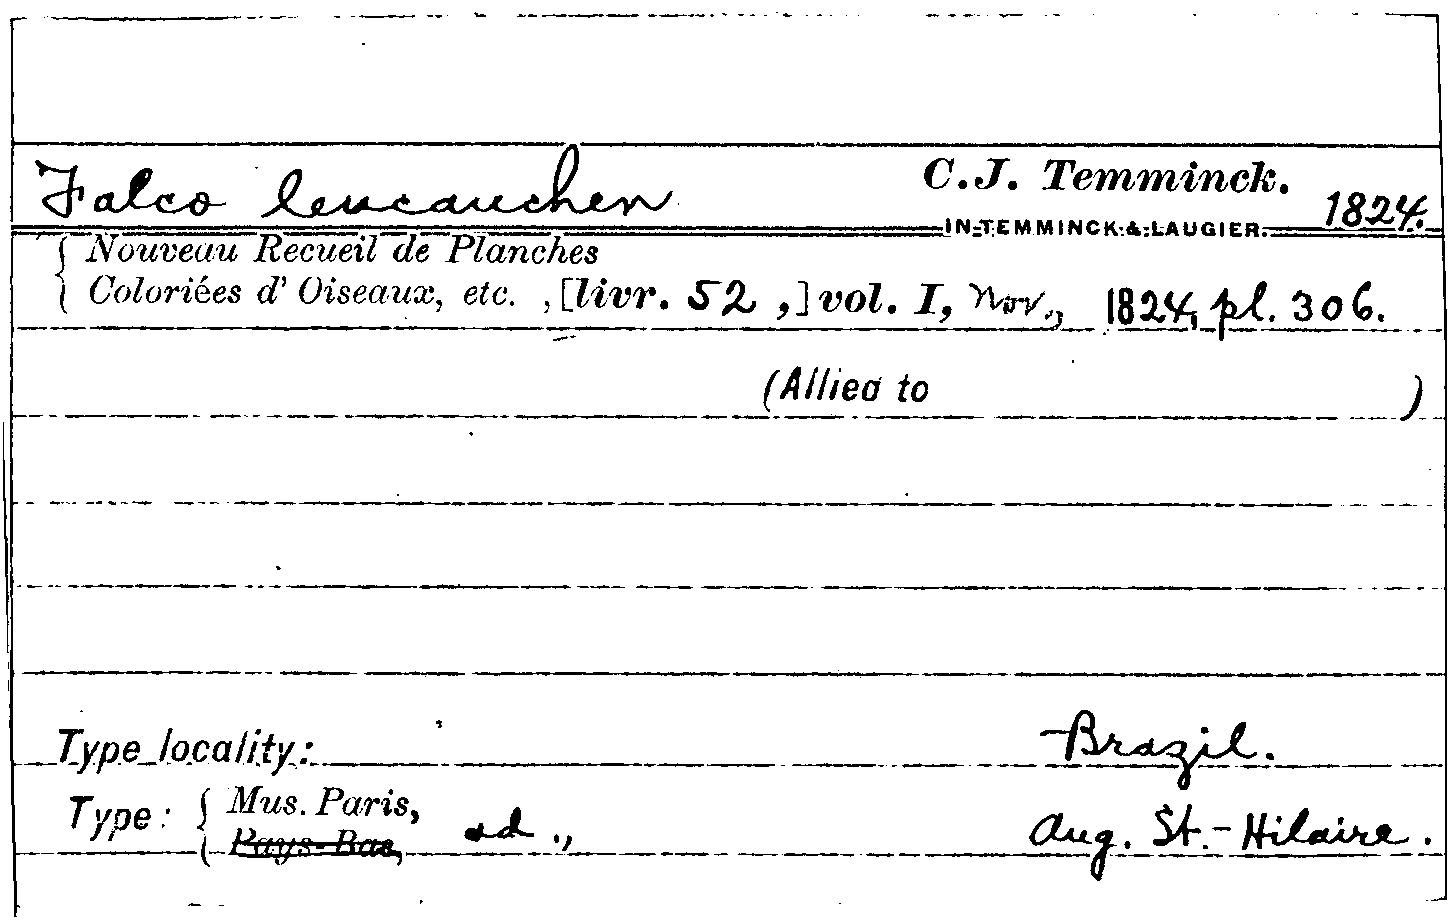 Falco leucauchen C.J. Temminck. 1824.
IN TEMMINCK & LAUGIER.
Nouveau Recueil de Planches
Coloriées d' Oiseaux, etc. , [livr. 52 ,] vol. I, Nov., 1824, pl. 306.
(Allied to )
Type locality: Brazil.
Type: { Mus. Paris, ad., Aug. St.-Hilaire.
Pays-Bas,